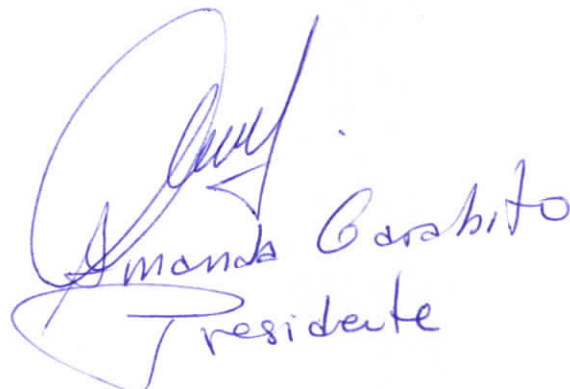 Amanda Garabito
Presidente